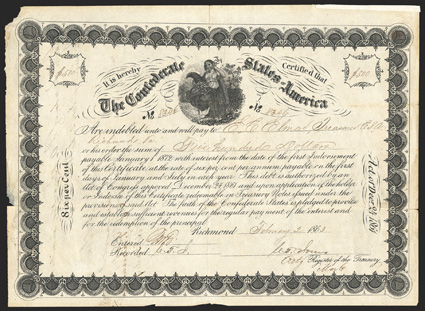 $500 $500
It is hereby Certified that
The Confederate States of America
No No
Are indebted unto and will pay to Treasurer C.S.A.
or his order the sum of Five Hundred Dollars
payable January 1 1872 with interest from the date of the first Indorsement
of this Certificate, at the rate of six per cent per annum payable on the first
days of January, and July in each year. This debt is authorized by an
Act of Congress approved, December 24 1861 and upon application of the holder
or Indorsee of this Certificate reconvertible in Treasury Notes issued under the
provisions of said Act. The faith of the Confederate States is pledged to provide
and establish sufficient revenues for the regular payment of the interest and
for the redemption of the principal.
Richmond February 2 1863
Entered
Recorded
Register of the Treasury
Six per cent
Act of Decr 24 1861